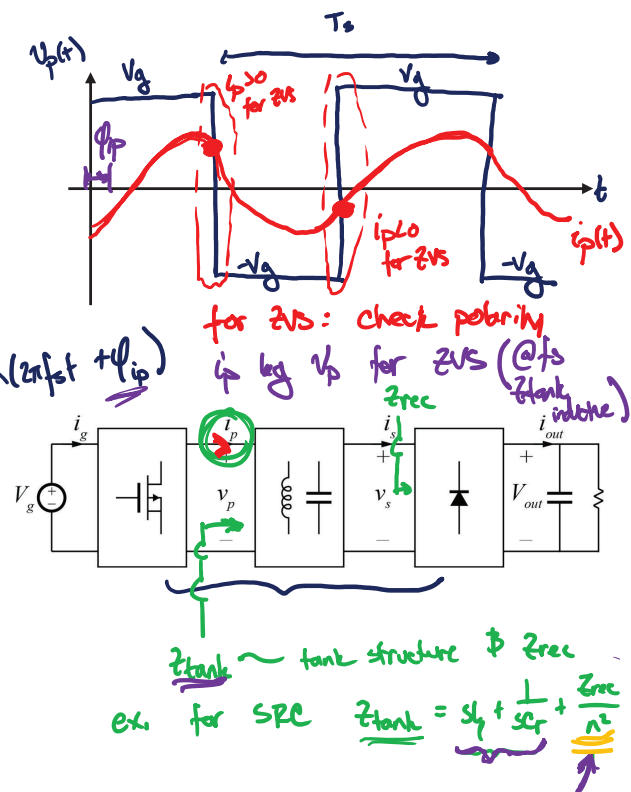 Ts
vp(t)
Vg
ip>0
for ZVS
Vg
φip
t
ip<0
for ZVS
ip(t)
-Vg
-Vg
for ZVS: check polarity
(2πfst + φip)
ip lag Vp for ZVS (@fs
Ztank
inductive)
Zrec
ig
ip
is
iout
Vg
+
−
+
vp
−
+
vs
−
+
Vout
−
Ztank ~ tank structure & Zrec
ex. for SRC Ztank = sLr + 1/sCr + Zrec/n²